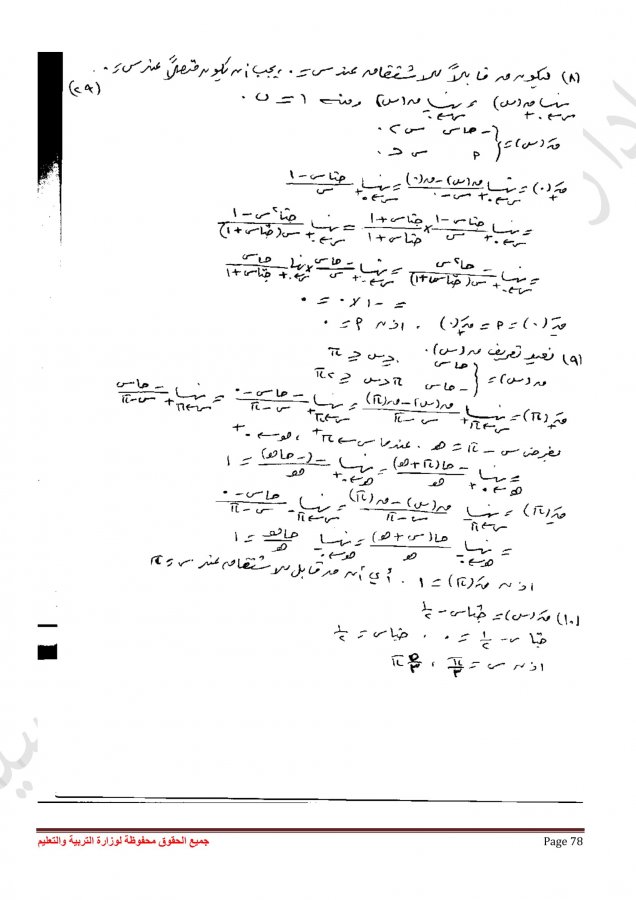 (٨) ليكون ق قابلاً للاشتقاق عند س = ٠ يجب أن يكون متصلاً عند س = ٠
(٢٩)
نهــا ق(س) = نهــا ق(س) ومنه ١ = ب
س←٠+ س←٠-
قَ(س) = { -جا س س > ٠
أ س < ٠
قَ+(٠) = نهــا ق(س) - ق(٠) / س - ٠ = نهــا جتا س - ١ / س
= نهــا جتا س - ١ / س × جتا س + ١ / جتا س + ١ = نهــا جتا²س - ١ / س(جتا س + ١)
= نهــا - جا²س / س(جتا س + ١) = نهــا - جا س / س × نهــا جا س / جتا س + ١
= - ١ × ٠ = ٠
قَ-(٠) = أ = قَ+(٠) ، اذن أ = ٠
(٩) نعيد تعريف ق(س)
ق(س) = { جا س ٠ ≤ س ≤ π
- جا س π < س ≤ ٢π
قَ+(π) = نهــا ق(س) - ق(π) / س - π = نهــا - جا س - ٠ / س - π = نهــا - جا س / س - π
نفرض س - π = هـ ، عندما س ← π+ ، هـ ← ٠+
= نهــا - جا(π + هـ) / هـ = نهــا - (- جا هـ) / هـ = ١
قَ-(π) = نهــا ق(س) - ق(π) / س - π = نهــا جا س - ٠ / س - π
= نهــا جا(س + هـ) / هـ = نهــا جا هـ / هـ = ١
اذن قَ(π) = ١ . أي أن ق قابل للاشتقاق عند س = π
(١٠) قَ(س) = جتا س - ١/٢
جتا س - ١/٢ = ٠ ، جتا س = ١/٢
اذن س = π/٣ ، ٥/٣ π
جميع الحقوق محفوظة لوزارة التربية والتعليم
Page 78